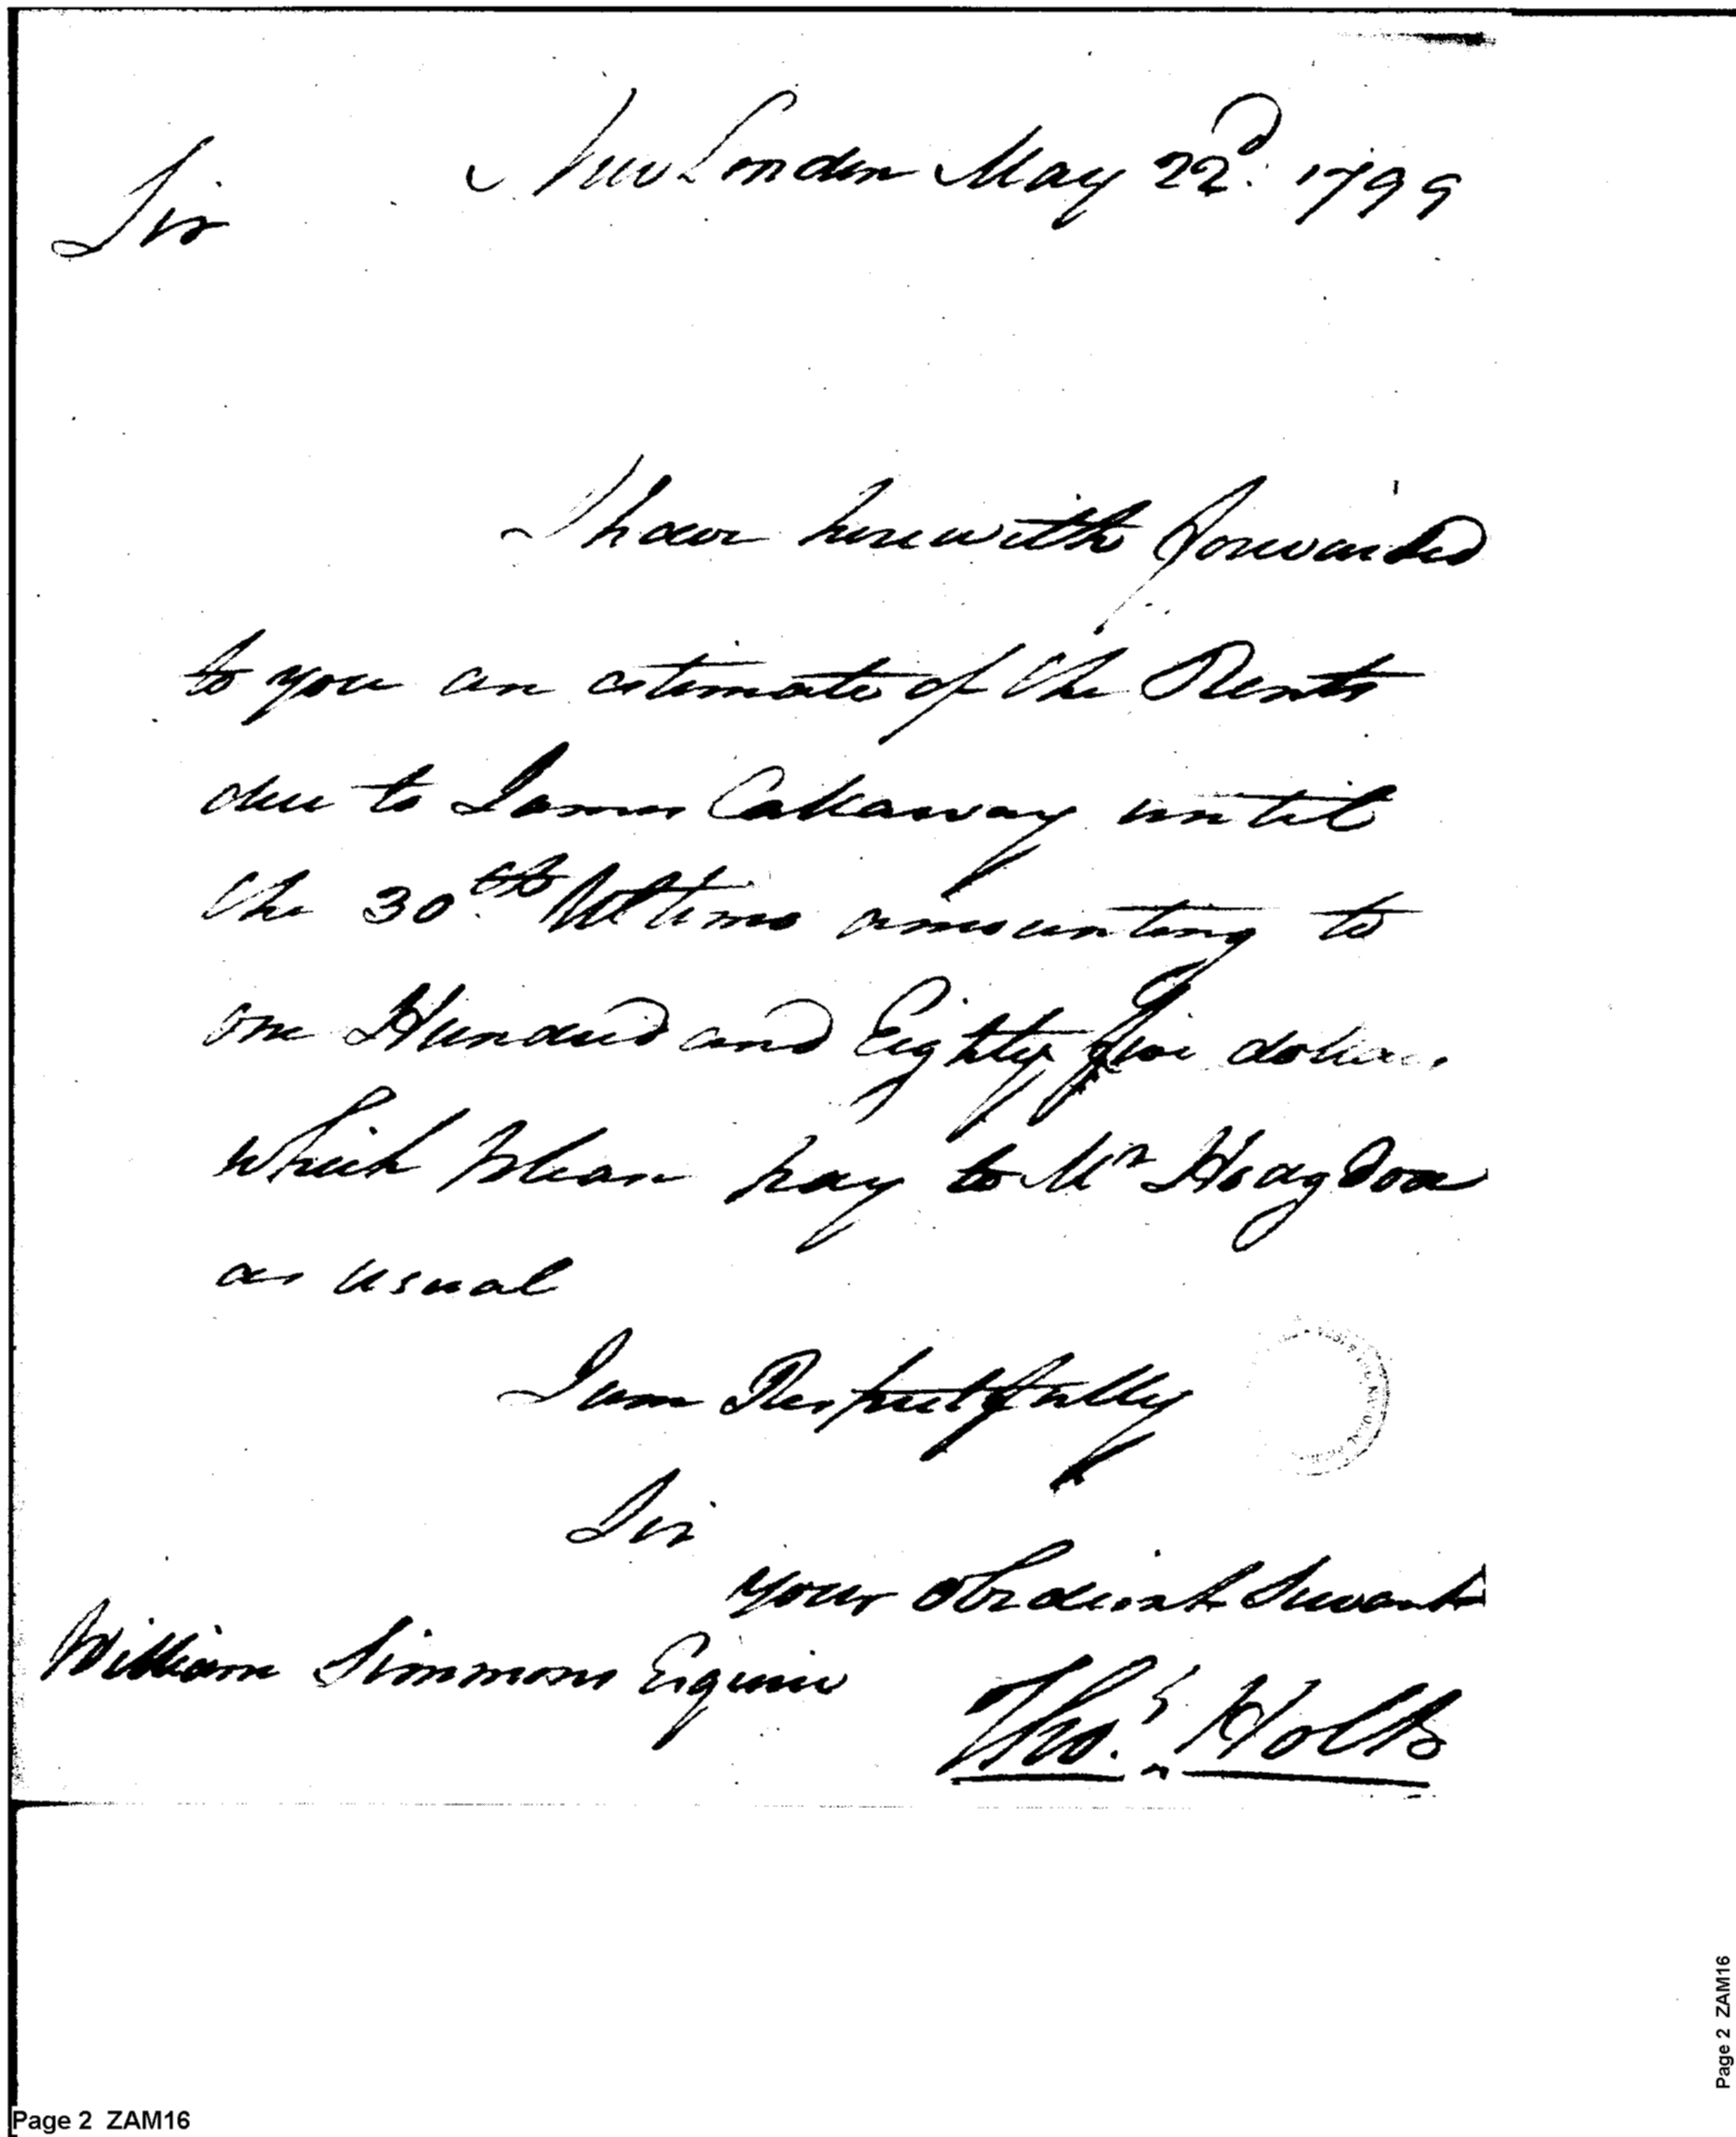 New London May 22d. 1799
Sir
I have herewith forwarded
to you an estimate of the Rents
due to James Callaway until
the 30th Ultimo amounting to
one Hundred and Eighty five dollars
which please pay to Mr Hodgdon
as usual
I am Respectfully
Sir
your obedient Servant
William Simmons Esquire
Thos. Holt
Page 2 ZAM16
Page 2 ZAM16